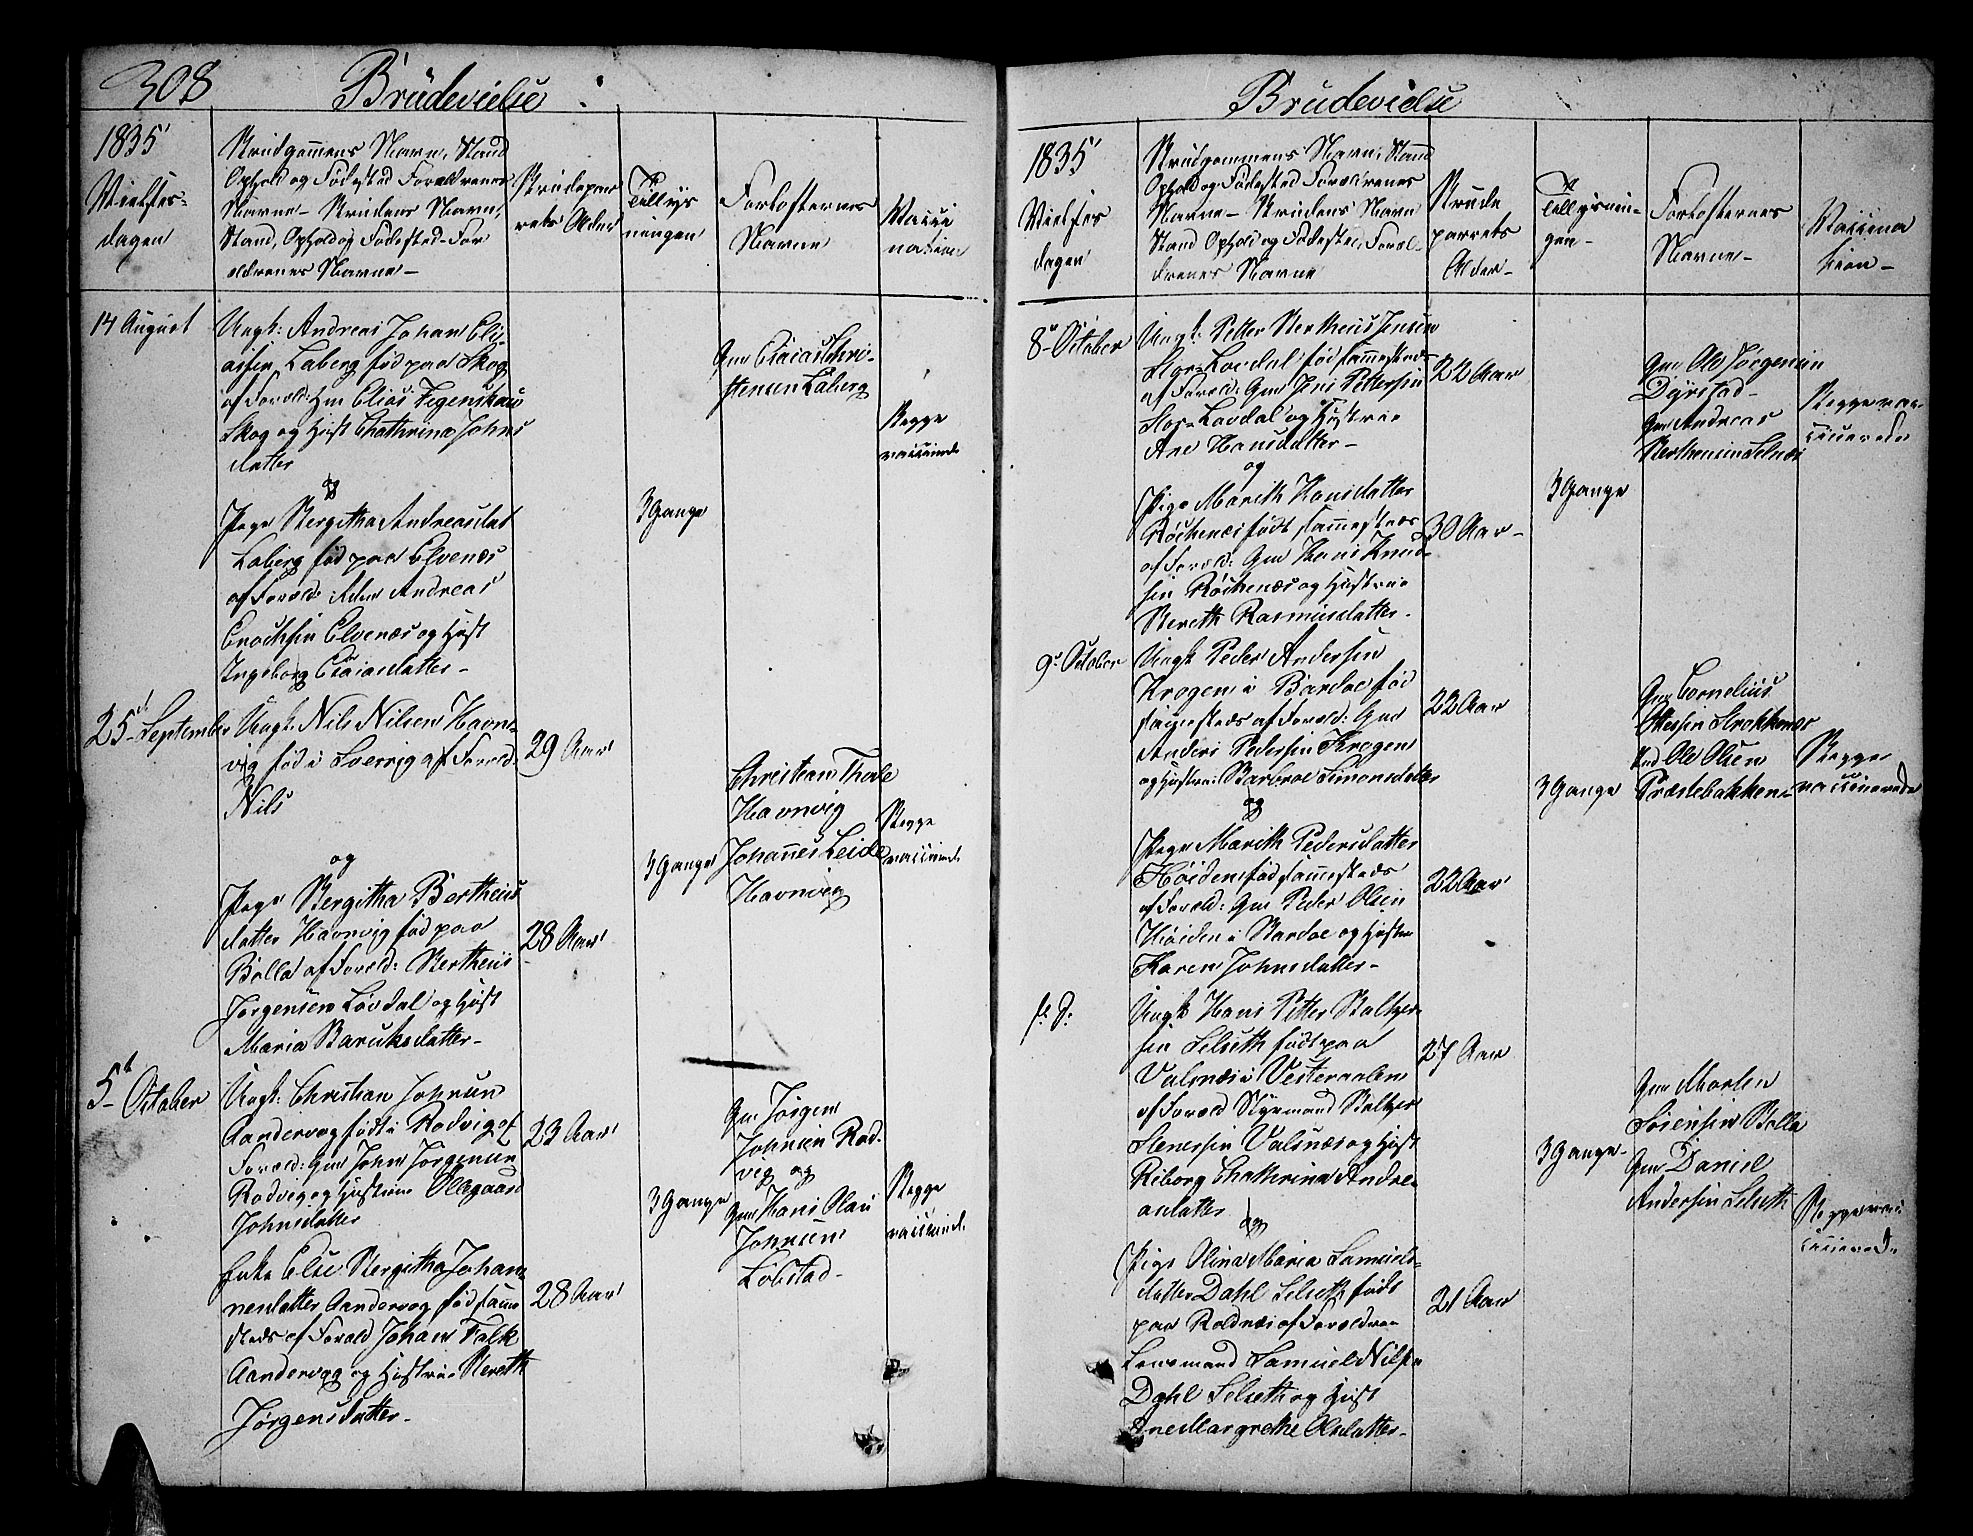 308
Brudevielse
1835
Vielses-
dagen
Brudgommens Navn, Stand
Ophold og Fødested Forældrenes
Navne – Brudens Navn,
Stand, Ophold og Fødested – For
ældrenes Navne –
Brudepar
rets Alder
Tillys
ningen
Forlosternes
Navne
Vacci
nation
14 August
Ungk: Andreas Johan Eli-
assen Laberg fød paa Skog
af Foræld: Gm Elias
Skog og Hust Chathrina Johns
datter
og
Pige Bergitha Andreasdat
Laberg fød paa Elvenæs
af Foræld: Andreas
Enochsen Elvenæs og Hust
Ingeborg Esaiasdatter –
3 Gange
Gm Esaias Chri-
stensen Laberg
Begge
vaccinerede
25 September
Ungk: Nils Nilsen Havn-
vig fød i Sverrig af Foræld.
Nils
29 Aar
og
Pige Bergitha Bertheus
datter Havnvig fød paa
Bolla af Foræld: Bertheus
Jørgensen Løvdal og Hust
Maria Baruksdatter –
28 Aar
3 Gange
Christian Thode
Havnvig
Johannes Leide
Havnvig
Begge
vaccinerede
5 October
Ungk: Christian Johnsen
Aandervog født i Rodvig af
Foræld: Gm John Jørgensen
Rodvig og Hustrue Ollegaard
Johnsdatter
23 Aar
Enke Else Bergitha Johan-
nesdatter Aandervog fød samme
steds af Foræld Johan Falk
Aandervog og Hustrue Bereth
Jørgensdatter –
28 Aar
3 Gange
Gm Jørgen
Johnsen Rod-
vig og
Gm Hans Olau
Johnsen
Løbstad –
Begge
vaccinerede
Brudevielse
1835
Vielses
dagen
Brudgommens Navn, Stand
Ophold og Fødested Forældrenes
Navne – Brudens Navn
Stand Ophold og Fødested, Foræl-
drenes Navne
Brude
parrets
Alder –
Tillysnin-
gen –
Forlosternes
Navne –
Vaccina
tion –
8 October
Ungk: Petter Bertheus Jensen
Stor-Lovdal fød sammesteds
af Foræld: Gm Jens Pettersen
Stor-Lovdal og Hustrue
Ane Hansdatter –
22 Aar
og
Pige Mareth Hansdatter
Røchenæs født sammesteds
af Foræld: Gm Hans Knud-
sen Røchenæs og Hustrue
Bereth Rasmusdatter –
30 Aar –
3 Gange
Gm Ole Jørgensen
Dyrstad –
Gm Andreas
Berthensen Selnæs
Begge vac-
cinerede
9 October
Ungk Peder Andersen
Krogen i Bardoe fød
sammesteds af Foræld: Gm
Anders Pedersen Krogen
og Hustrue: Barbroe Simonsdatter
22 Aar
og
Pige Mareth Pedersdatter
Høiden fød sammesteds
af Foræld: Gm Peder Olsen
Høiden i Bardoe og Hustrue
Karen Johnsdatter –
22 Aar
3 Gange
Gm Cornelius
Strokkenæs
Ole Olsen
Præstebakken –
Begge
vaccinerede
s. D:
Ungk Hans Petter Baltzer-
sen Selseth født paa
Valsnæs i Vesteraalen
af Foræld Styrmand Baltzer
Stenersen Valsnæs og Hust
Riborg Chathrina Andre-
asdatter
27 Aar
og
Pige Olina Maria Samuels-
datter Dahl Selseth født
paa Roldnæs af Forældrene
Lensmand Samuel Nilsen
Dahl Selseth og Hust
Ane Margrethe Olsdatter –
21 Aar
3 Gange –
Gm Morten
Sørensen Bolla
Gm Daniel
Andersen Selseth
Begge vac-
cinerede